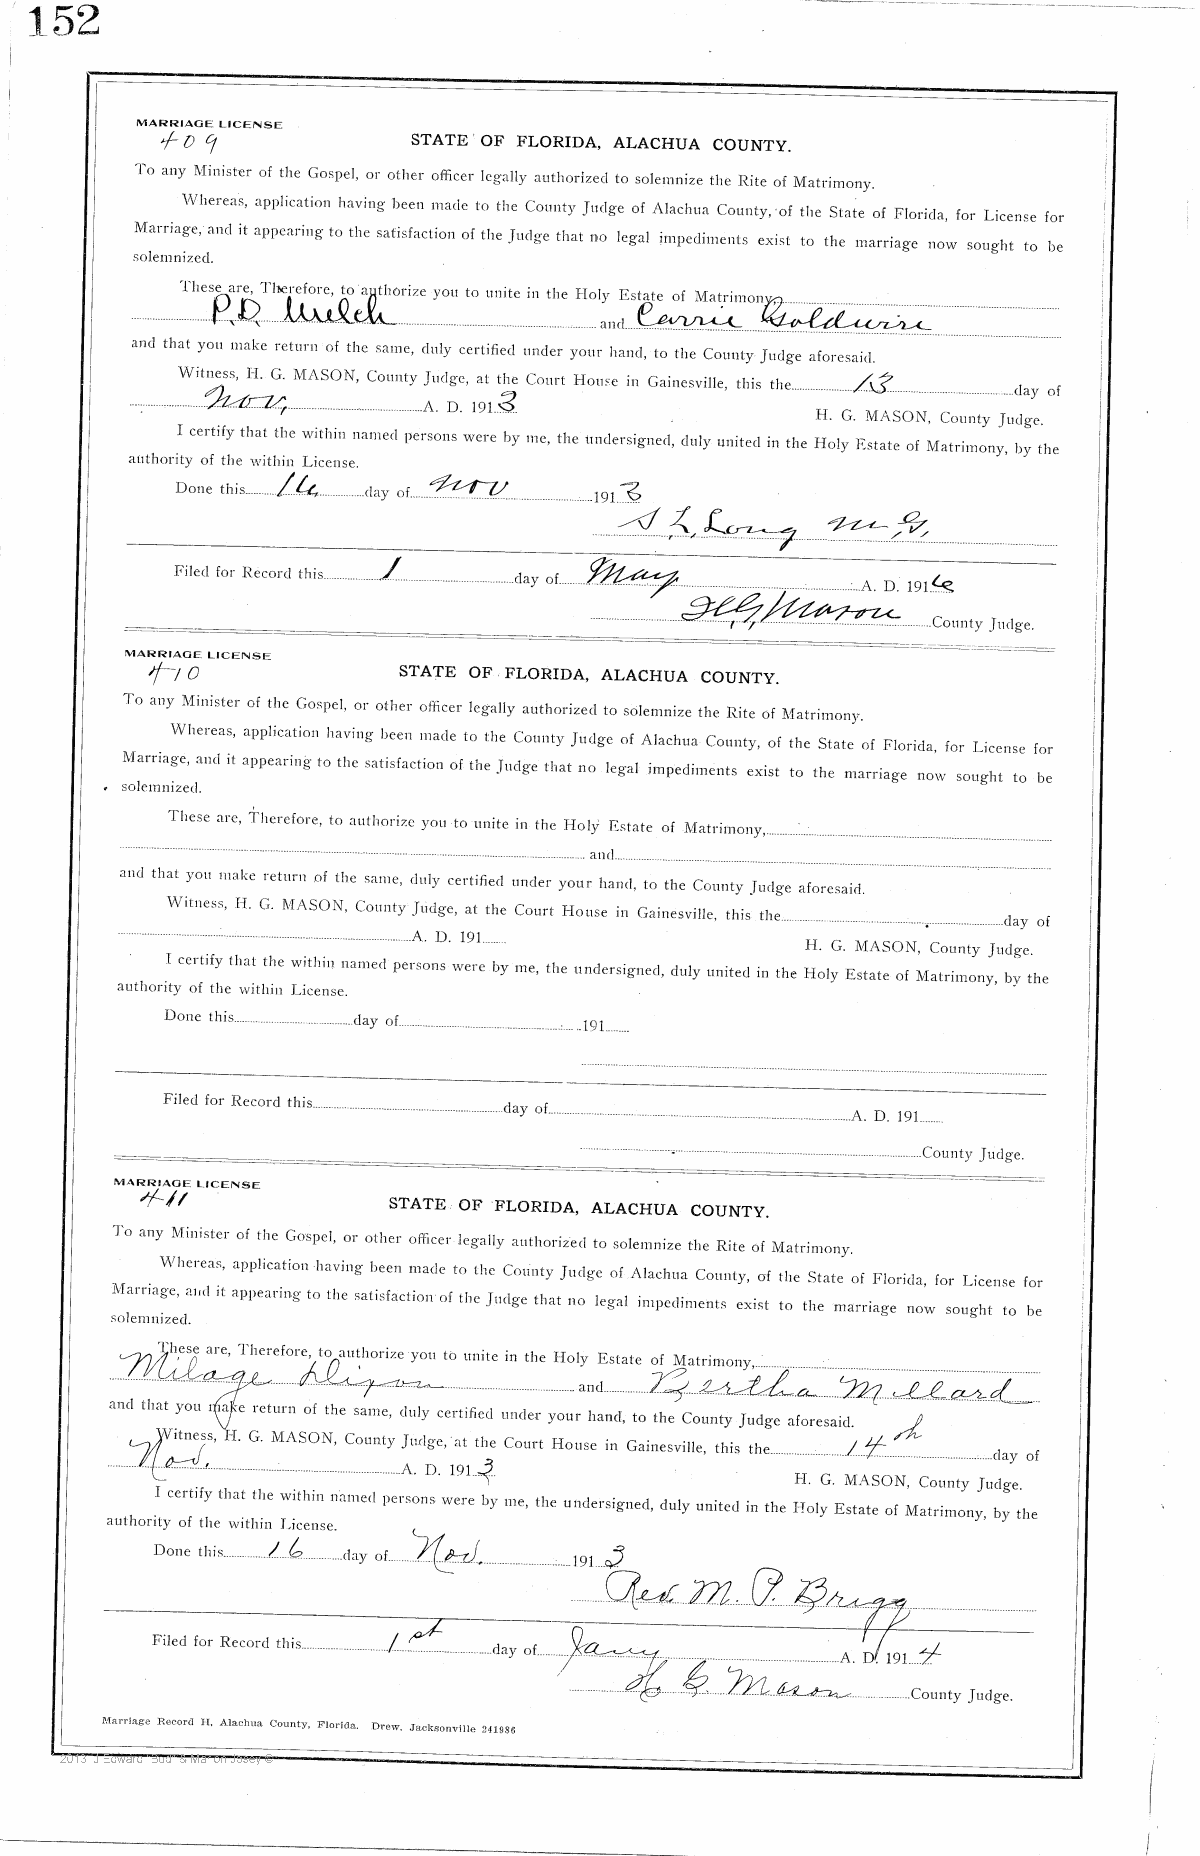 152
MARRIAGE LICENSE
409
STATE OF FLORIDA, ALACHUA COUNTY.
To any Minister of the Gospel, or other officer legally authorized to solemnize the Rite of Matrimony.
Whereas, application having been made to the County Judge of Alachua County, of the State of Florida, for License for
Marriage, and it appearing to the satisfaction of the Judge that no legal impediments exist to the marriage now sought to be
solemnized.
These are, Therefore, to authorize you to unite in the Holy Estate of Matrimony,
P.D. Welch and Carrie Goldwire
and that you make return of the same, duly certified under your hand, to the County Judge aforesaid.
Witness, H. G. MASON, County Judge, at the Court House in Gainesville, this the 13 day of
Nov, A. D. 1913 H. G. MASON, County Judge.
I certify that the within named persons were by me, the undersigned, duly united in the Holy Estate of Matrimony, by the
authority of the within License.
Done this 16 day of Nov 1913
S L, Long M, G,
Filed for Record this 1 day of May A. D. 1916
H,G, Mason County Judge.
MARRIAGE LICENSE
410
STATE OF FLORIDA, ALACHUA COUNTY.
To any Minister of the Gospel, or other officer legally authorized to solemnize the Rite of Matrimony.
Whereas, application having been made to the County Judge of Alachua County, of the State of Florida, for License for
Marriage, and it appearing to the satisfaction of the Judge that no legal impediments exist to the marriage now sought to be
solemnized.
These are, Therefore, to authorize you to unite in the Holy Estate of Matrimony,
and
and that you make return of the same, duly certified under your hand, to the County Judge aforesaid.
Witness, H. G. MASON, County Judge, at the Court House in Gainesville, this the day of
A. D. 191 H. G. MASON, County Judge.
I certify that the within named persons were by me, the undersigned, duly united in the Holy Estate of Matrimony, by the
authority of the within License.
Done this day of 191
Filed for Record this day of A. D. 191
County Judge.
MARRIAGE LICENSE
411
STATE OF FLORIDA, ALACHUA COUNTY.
To any Minister of the Gospel, or other officer legally authorized to solemnize the Rite of Matrimony.
Whereas, application having been made to the County Judge of Alachua County, of the State of Florida, for License for
Marriage, and it appearing to the satisfaction of the Judge that no legal impediments exist to the marriage now sought to be
solemnized.
These are, Therefore, to authorize you to unite in the Holy Estate of Matrimony,
Milage Dixon and Bertha Millard
and that you make return of the same, duly certified under your hand, to the County Judge aforesaid.
Witness, H. G. MASON, County Judge, at the Court House in Gainesville, this the 14th day of
Nov. A. D. 1913 H. G. MASON, County Judge.
I certify that the within named persons were by me, the undersigned, duly united in the Holy Estate of Matrimony, by the
authority of the within License.
Done this 16 day of Nov. 1913
Rev. M. P. Brigg
Filed for Record this 1st day of Jany A. D. 1914
H. G. Mason County Judge.
Marriage Record H, Alachua County, Florida. Drew, Jacksonville 241986
2013 J Edward "Bud" & Marion Josey ©